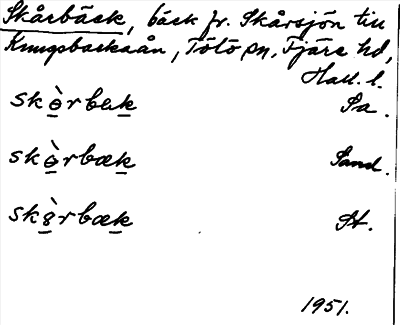 Skårbäck, bäck fr. Skårsjön till
Kungsbackaån, Tölö sn, Fjäre hd,
Hall. l.
skɵ̀rbæk Pa.
skɵ̀rbæk Sand.
skɵ̀rbæk St.
1951.